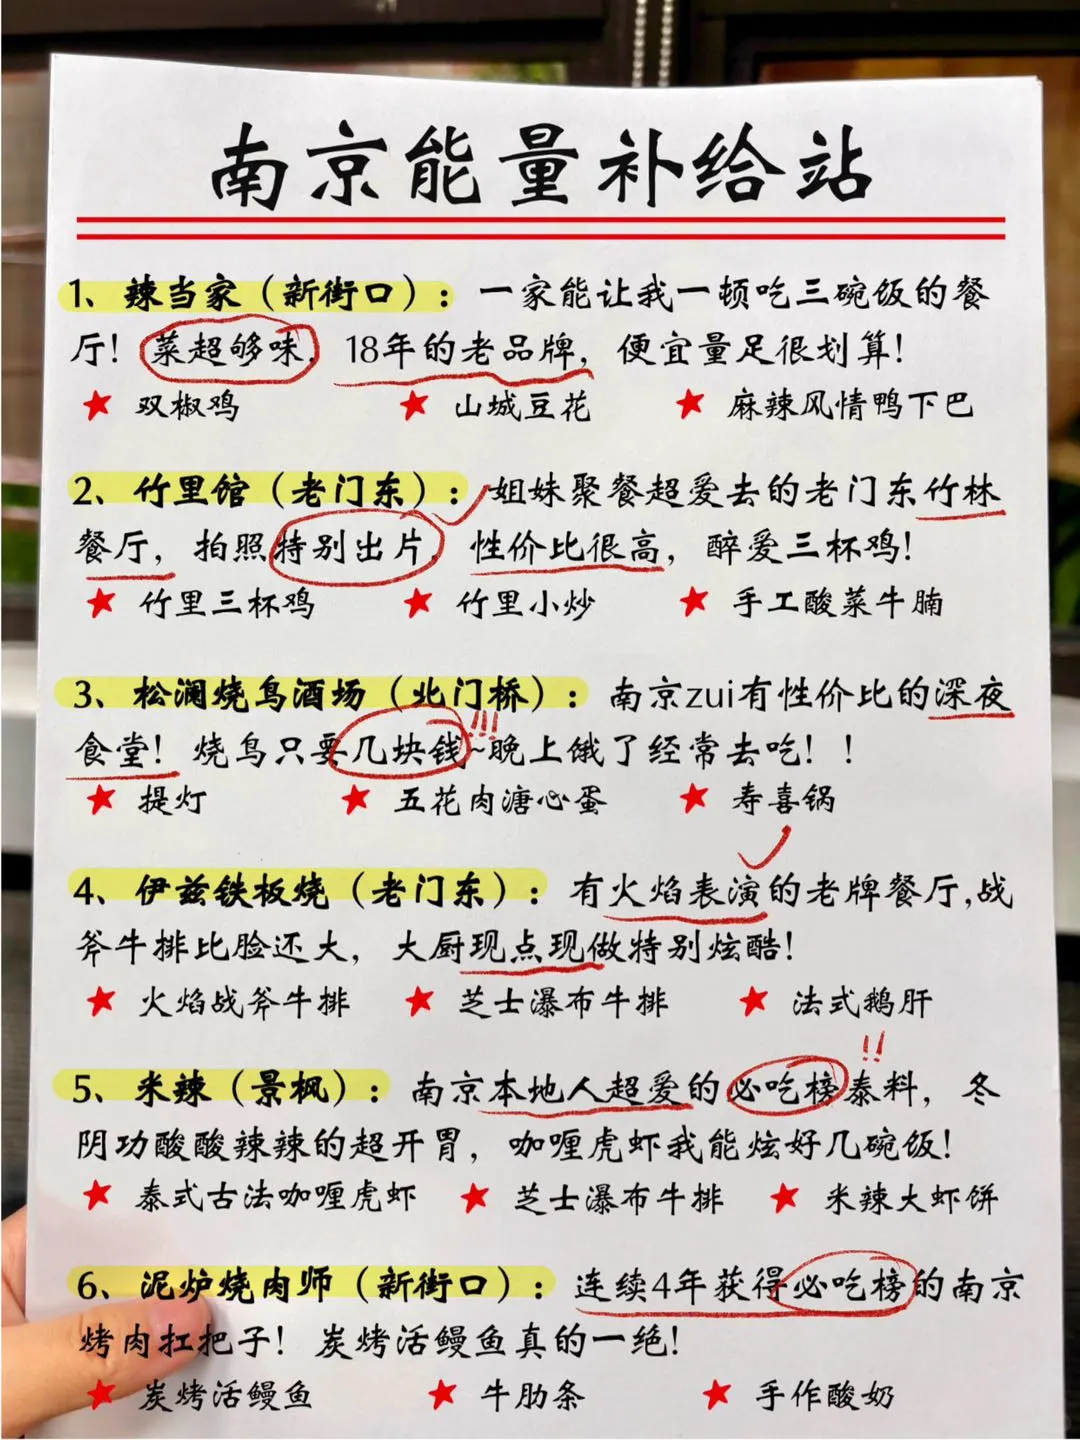 南京能量补给站
1、辣当家（新街口）：一家能让我一顿吃三碗饭的餐
厅！菜超够味，18年的老品牌，便宜量足很划算！
★ 双椒鸡 ★ 山城豆花 ★ 麻辣风情鸭下巴
2、竹里馆（老门东）：姐妹聚餐超爱去的老门东竹林
餐厅，拍照特别出片，性价比很高，醉爱三杯鸡！
★ 竹里三杯鸡 ★ 竹里小炒 ★ 手工酸菜牛腩
3、松澜烧鸟酒场（北门桥）：南京zui有性价比的深夜
食堂！烧鸟只要几块钱~晚上饿了经常去吃！！
!!!
★ 提灯 ★ 五花肉溏心蛋 ★ 寿喜锅
4、伊兹铁板烧（老门东）：有火焰表演的老牌餐厅,战
斧牛排比脸还大，大厨现点现做特别炫酷！
★ 火焰战斧牛排 ★ 芝士瀑布牛排 ★ 法式鹅肝
!!
5、米辣（景枫）：南京本地人超爱的必吃榜泰料，冬
阴功酸酸辣辣的超开胃，咖喱虎虾我能炫好几碗饭！
★ 泰式古法咖喱虎虾 ★ 芝士瀑布牛排 ★ 米辣大虾饼
6、泥炉烧肉师（新街口）：连续4年获得必吃榜的南京
烤肉扛把子！炭烤活鳗鱼真的一绝！
★ 炭烤活鳗鱼 ★ 牛肋条 ★ 手作酸奶